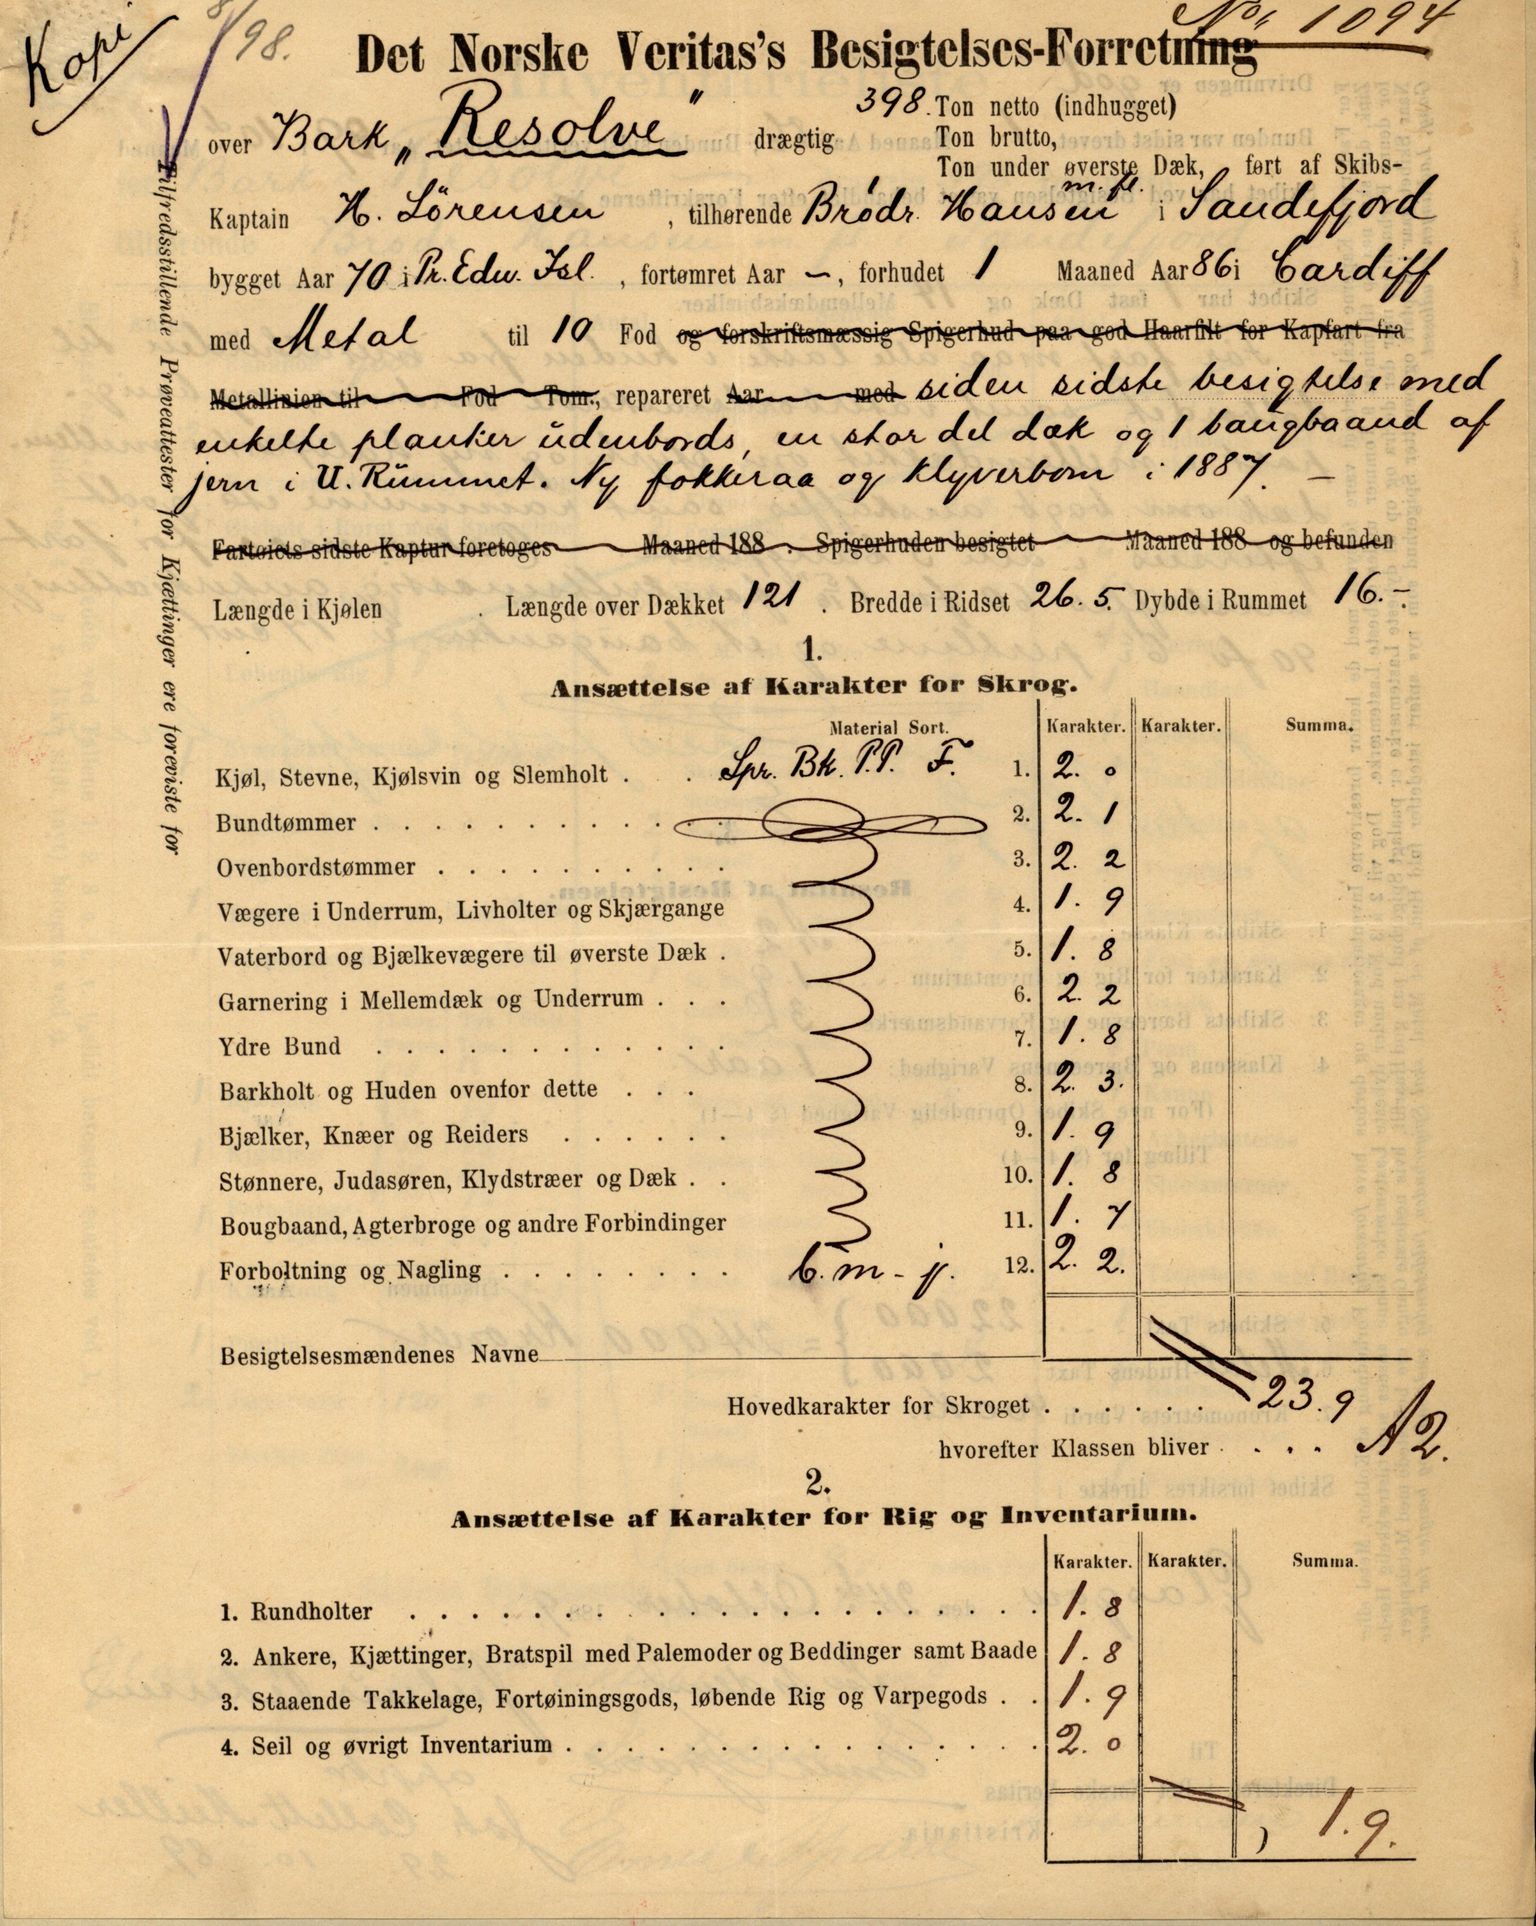 Kopi
8/98.
No. 1094
Det Norske Veritas's Besigtelses-Forretning
over Bark „Resolve" drægtig 398. Ton netto (indhugget)
Ton brutto,
Ton under øverste Dæk, ført af Skibs-
Kaptain H. Sörensen, tilhørende Brödr. Hansen m. fl. i Sandefjord
bygget Aar 70 i Pr. Edw. Isl., fortømret Aar —, forhudet 1 Maaned Aar 86 i Cardiff
med Metal til 10 Fod og forskriftsmæssig Spigerhud paa god Haarfilt for Kapfart fra
Metallinien til Fod Tom., repareret Aar med siden sidste besigtelse med
enkelte planker udenbords, en stor del dæk og 1 baugbaand af
jern i U. Rummet. Ny fokkeraa og klyverbom i 1887. —
Fartøiets sidste Kaptur foretoges Maaned 188 . Spigerhuden besigtet Maaned 188 og befunden
Længde i Kjølen . Længde over Dækket 121 . Bredde i Ridset 26. 5. Dybde i Rummet 16. -.
Tilfredsstillende Prøveattester for Kjættinger ere foreviste for
1.
Ansættelse af Karakter for Skrog.
Material Sort. Karakter. Karakter. Summa.
Kjøl, Stevne, Kjølsvin og Slemholt . . Spr. Bk. P.P. F. 1. 2. 0
Bundtømmer . . . . . . . . . . . . 2. 2. 1
Ovenbordstømmer . . . . . . . . . . 3. 2. 2
Vægere i Underrum, Livholter og Skjærgange 4. 1. 9
Vaterbord og Bjælkevægere til øverste Dæk . 5. 1. 8
Garnering i Mellemdæk og Underrum . . . 6. 2. 2
Ydre Bund . . . . . . . . . . . . 7. 1. 8
Barkholt og Huden ovenfor dette . . . 8. 2. 3.
Bjælker, Knæer og Reiders . . . . . . 9. 1. 9
Stønnere, Judasøren, Klydstræer og Dæk . . 10. 1. 8
Bougbaand, Agterbroge og andre Forbindinger 11. 1. 7
Forboltning og Nagling . . . . . . . . 6. m - j. 12. 2. 2.
Besigtelsesmændenes Navne
Hovedkarakter for Skroget . . . . . . 23. 9
hvorefter Klassen bliver . . . . A 2.
2.
Ansættelse af Karakter for Rig og Inventarium.
Karakter. Karakter. Summa.
1. Rundholter . . . . . . . . . . . . . . . . . . . . 1. 8
2. Ankere, Kjættinger, Bratspil med Palemoder og Beddinger samt Baade 1. 8
3. Staaende Takkelage, Fortøiningsgods, løbende Rig og Varpegods . . 1. 9
4. Seil og øvrigt Inventarium . . . . . . . . . . . . . . . . 2. 0
1. 9.